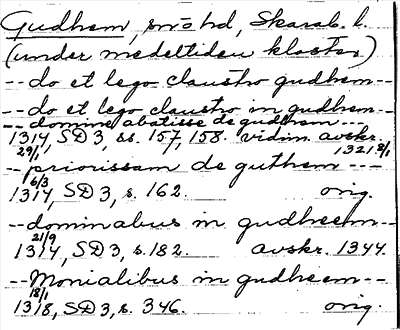 Gudhem, sn o hd, Skarab. l.
(under medeltiden kloster)
-- do et lego claustro gudhem --
-- do et lego claustro in gudhem --
-- domine abatisse de gudhem --
1314 29/1, SD 3, ss. 157, 158. vidim. avskr. 1321 8/1
-- priorissam de guthem ---
1314 6/3, SD 3, s. 162. orig.
-- dominabus in gudheem --
1314 21/9, SD 3, s. 182. avskr. 1344.
-- Monialibus in gudheem --
1318 18/1, SD 3, s. 346. orig.